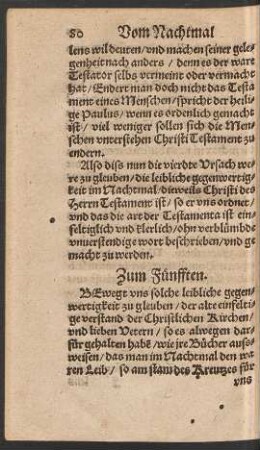 80 Vom Nachtmal
lens wil deuten / vnd machen seiner gele-
genheit nach anders / denn es der ware
Testator selbs vermeint oder vermacht
hat / Endert man doch nicht das Testa
ment eines Menschen / spricht der heili-
ge Paulus / wenn es ordenlich gemacht
ist / viel weniger sollen sich die Men-
schen vnterstehen Christi Testament zu
endern.
Also diss nun die vierdte Vrsach we-
re zu gleuben / die leibliche gegenwertig-
keit im Nachtmal / dieweils Christi des
Herrn Testament ist / so er vns ordnet /
vnd das die art der Testamenta ist ein-
feltiglich vnd klerlich / ohn verblümbde
vnuerstendige wort beschrieben / vnd ge
macht zu werden.
Zum Fünfften.
BEwegt vns solche leibliche gegen-
wertigkeit zu gleuben / der alte einfelti-
ge verstand der Christlichen Kirchen /
vnd lieben Vetern / so es alwegen dar-
für gehalten habē / wie jre Bücher auss-
weisen / das man im Nachtmal den wa
ren Leib / so am stam des Kreutzes für
vns